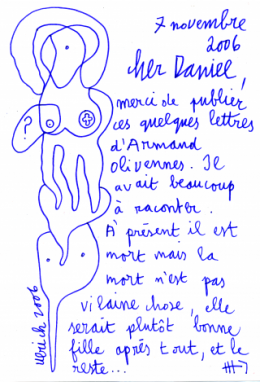 7 novembre
2006
cher Daniel,
merci de publier
ces quelques lettres
d'Armand
olivennes. Il
avait beaucoup
à raconter.
À présent il est
mort mais la
mort n'est pas
vilaine chose, elle
serait plutôt bonne
fille après tout, et le
reste...
?
ulrich 2006